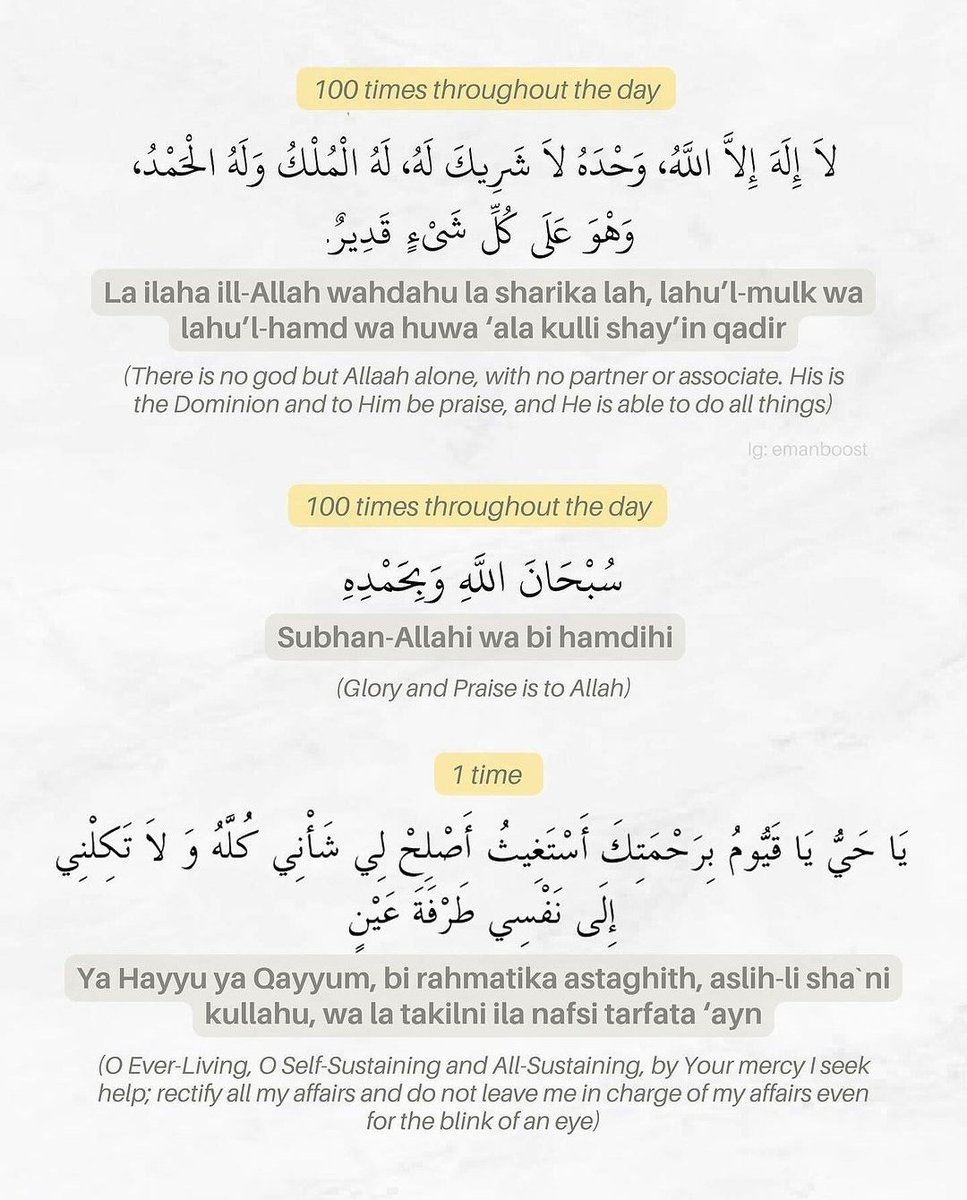 100 times throughout the day
لاَ إِلَهَ إِلاَّ اللَّهُ، وَحْدَهُ لاَ شَرِيكَ لَهُ، لَهُ الْمُلْكُ وَلَهُ الْحَمْدُ،
وَهْوَ عَلَى كُلِّ شَىْءٍ قَدِيرٌ.
La ilaha ill-Allah wahdahu la sharika lah, lahu’l-mulk wa
lahu’l-hamd wa huwa ‘ala kulli shay’in qadir
(There is no god but Allaah alone, with no partner or associate. His is
the Dominion and to Him be praise, and He is able to do all things)
Ig: emanboost
100 times throughout the day
سُبْحَانَ اللَّهِ وَبِحَمْدِهِ
Subhan-Allahi wa bi hamdihi
(Glory and Praise is to Allah)
1 time
يَا حَيُّ يَا قَيُّومُ بِرَحْمَتِكَ أَسْتَغِيثُ أَصْلِحْ لِي شَأْنِي كُلَّهُ وَ لاَ تَكِلْنِي
إِلَى نَفْسِي طَرْفَةَ عَيْنٍ
Ya Hayyu ya Qayyum, bi rahmatika astaghith, aslih-li sha`ni
kullahu, wa la takilni ila nafsi tarfata ‘ayn
(O Ever-Living, O Self-Sustaining and All-Sustaining, by Your mercy I seek
help; rectify all my affairs and do not leave me in charge of my affairs even
for the blink of an eye)